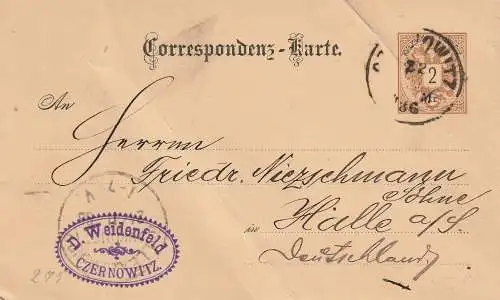 Correspondenz-Karte.
2
22
86
An
Herren
Friedr. Niezschmann
Söhne
in Halle a/S.
Deutschland
D. Weidenfeld
CZERNOWITZ